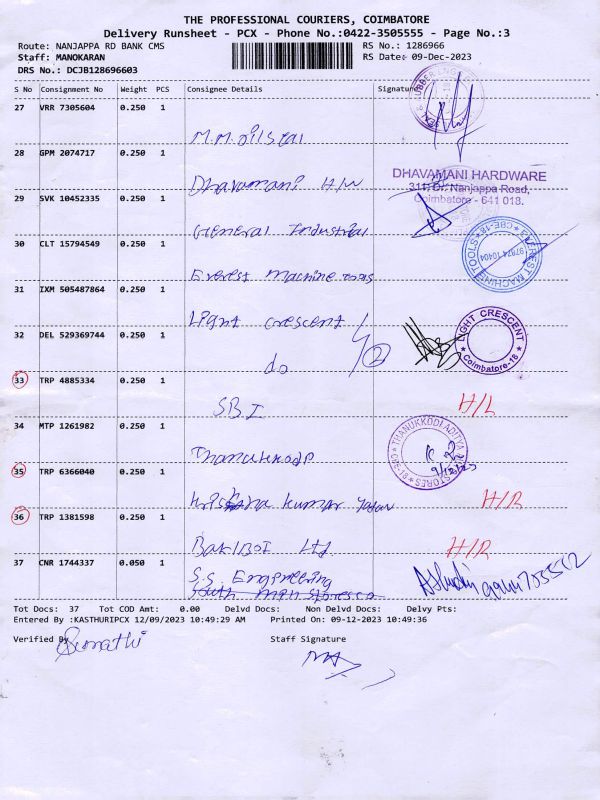 THE PROFESSIONAL COURIERS, COIMBATORE
Delivery Runsheet - PCX - Phone No.:0422-3505555 - Page No.:3
Route: NANJAPPA RD BANK CMS RS No.: 1286966
Staff: MANOKARAN RS Date: 09-Dec-2023
DRS No.: DCJB128696603
S No Consignment No Weight PCS Consignee Details Signature
27 VRR 7305604 0.250 1
M.M. Oil Seal
28 GPM 2074717 0.250 1
Dhavamani H/W
DHAVAMANI HARDWARE
Nanjappa Road,
Coimbatore - 641 018.
29 SVK 10452335 0.250 1
General Industrial
30 CLT 15794549 0.250 1
Everest Machine Tools
EVEREST MACHINE TOOLS CBE-18
97874 10404
31 IXM 505487864 0.250 1
Light crescent
32 DEL 529369744 0.250 1
do 2
LIGHT CRESCENT
Coimbatore-18
33 TRP 4885334 0.250 1
SBI H/L
34 MTP 1261982 0.250 1
Thanukkodi
THANUKKODI ADITYA STORES CBE-18
9/12/23
35 TRP 6366040 0.250 1
kumar H/R
36 TRP 1381598 0.250 1
Ltd H/R
37 CNR 1744337 0.050 1
S.S. Engineering
Tot Docs: 37 Tot COD Amt: 0.00 Delvd Docs: Non Delvd Docs: Delvy Pts:
Entered By :KASTHURIPCX 12/09/2023 10:49:29 AM Printed On :09-12-2023 10:49:36
Verified By Staff Signature